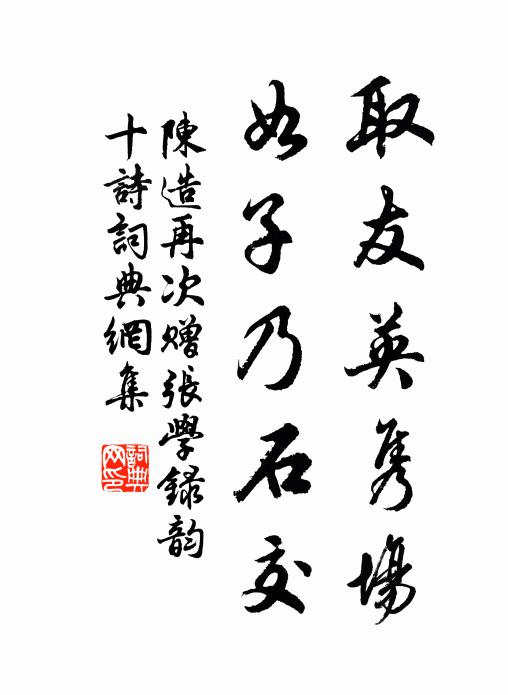 取友英隽場
如子乃石交
陳造再次贈張學録韵
十詩詞典網集
詞典網印